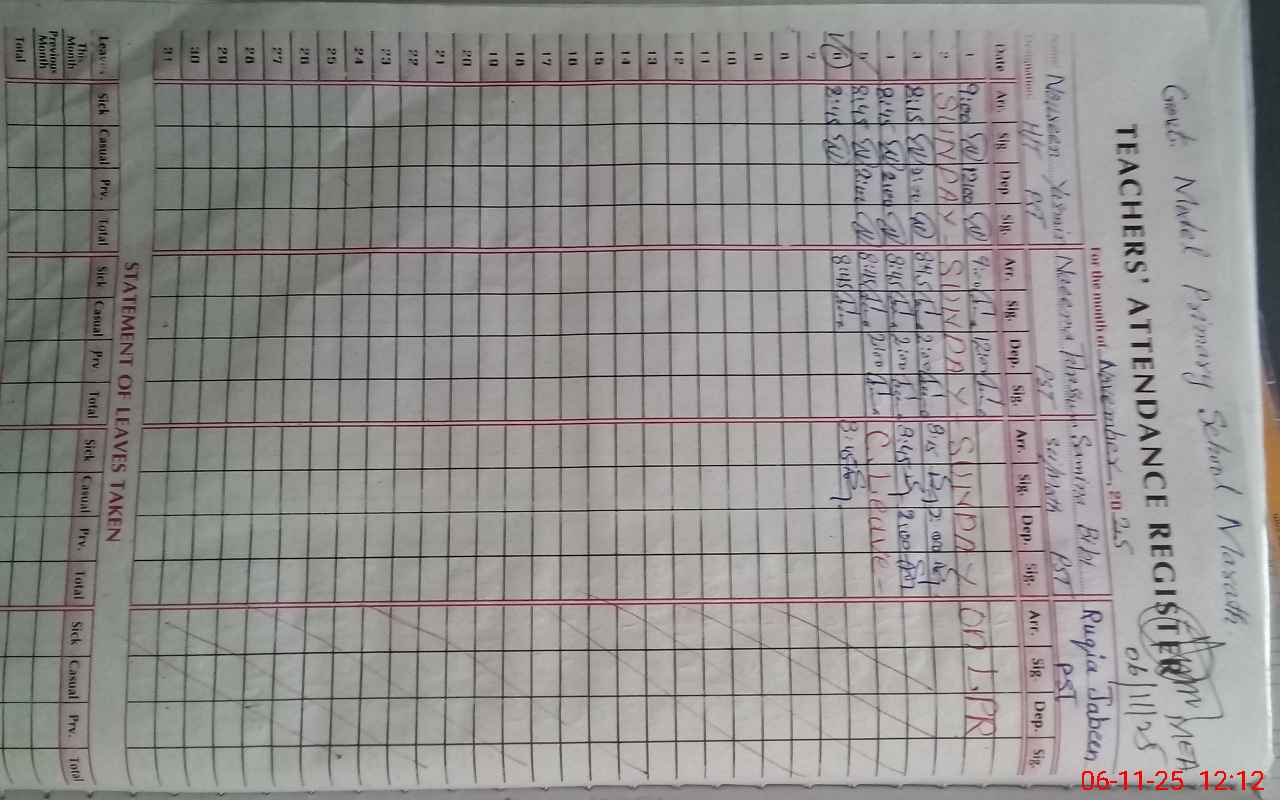 Govt. Model Primary School Masath
TEACHERS' ATTENDANCE REGISTER
MEA
06/11/25
For the month of November 2025
Name Nauseen Samina Bibi Ruqia Jabeen
Designation H/T PST PST PST PST
Date Arr. Sig. Dep. Sig. Arr. Sig. Dep. Sig. Arr. Sig. Dep. Sig. Arr. Sig. Dep. Sig.
1 9:00 12:00 9:00 12:00 on LPR
2 SUNDAY SUNDAY SUNDAY
3 8:15 2:00 8:45 2:00 8:15 2:00
4 8:45 2:00 8:45 2:00 8:45 2:00
5 8:45 2:00 8:45 2:00 C. Leave
6 8:45 8:45 8:45
7
8
9
10
11
12
13
14
15
16
17
18
19
20
21
22
23
24
25
26
27
28
29
30
31
STATEMENT OF LEAVES TAKEN
Leaves Sick Casual Prv. Total Sick Casual Prv. Total Sick Casual Prv. Total Sick Casual Prv. Total
This Month
Previous Month
Total
06-11-25 12:12